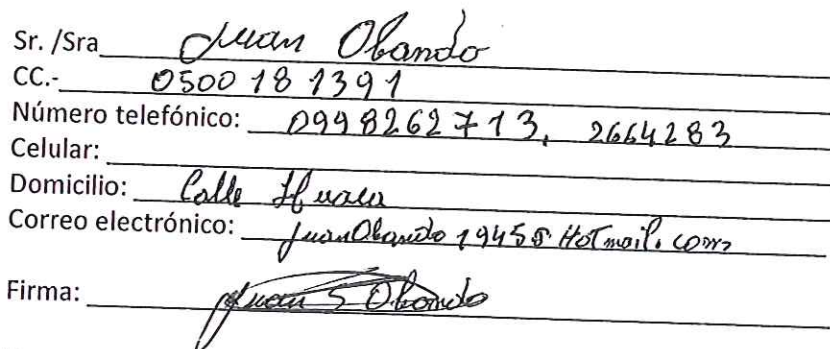 Sr. /Sra Juan Obando
CC.- 0500181391
Número telefónico: 0998262713, 2664283
Celular:
Domicilio: Calle
Correo electrónico: JuanObando 1945@ HoTmail. com
Firma: Juan S Obando